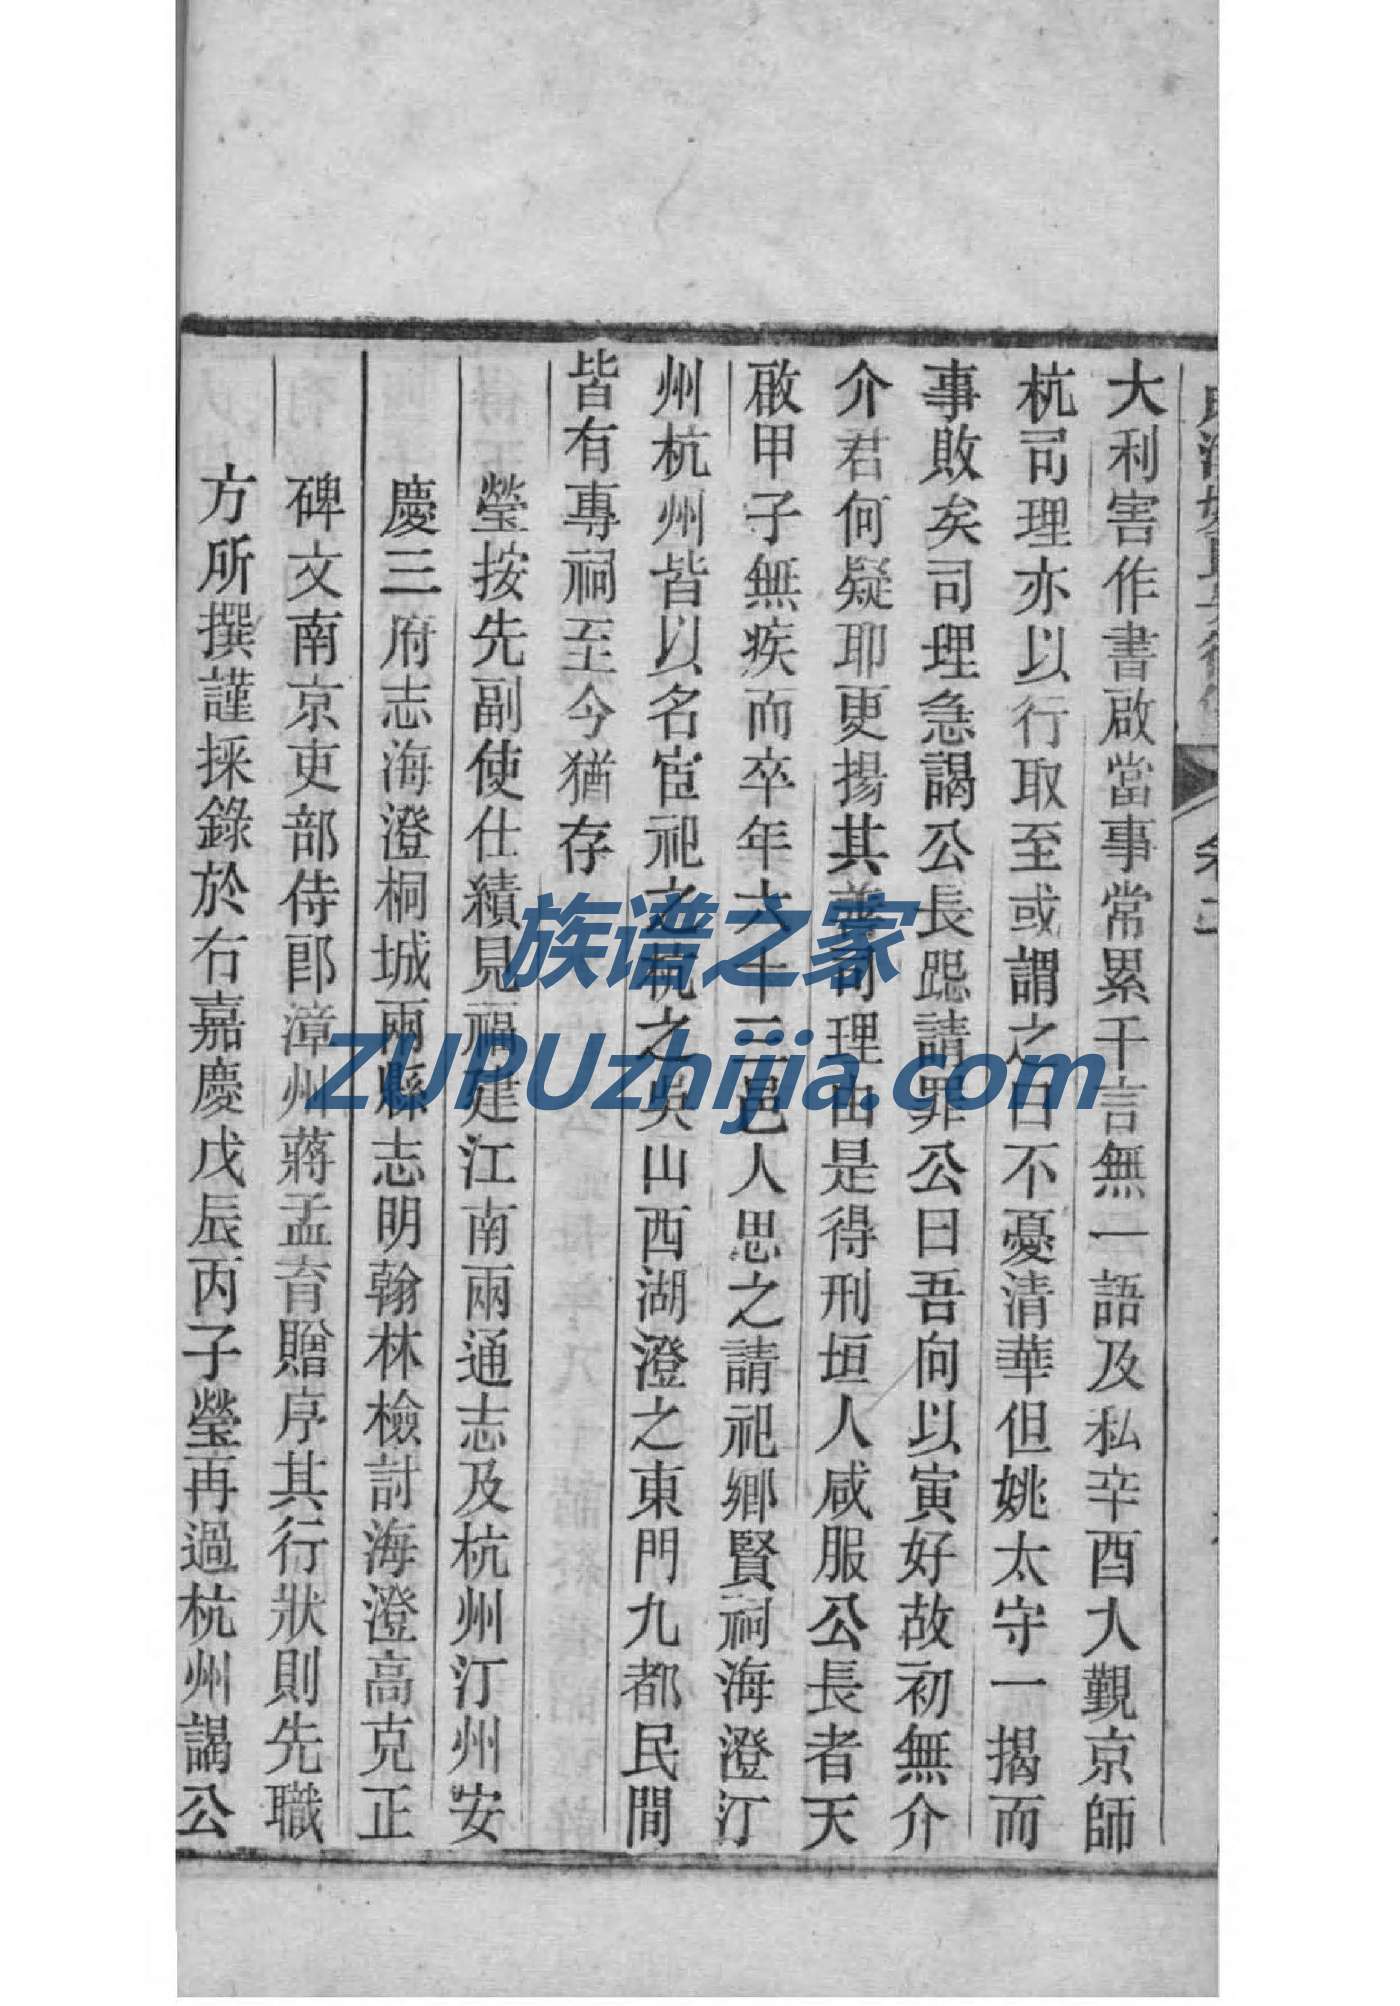 大利害作書啟當事常累千言無一語及私辛酉大覲京師
杭司理亦以行取至或謂之曰不憂清華但姚太守一揭而
事敗矣司理急謁公長跽請罪公曰吾向以寅好故初無介
介君何疑耶更揚其善司理由是得刑垣人咸服公長者天
啟甲子無疾而卒年六十三邑人思之請祀鄉賢祠海澄汀
州杭州皆以名宦祀之杭之吳山西湖澄之東門九都民間
皆有專祠至今猶存
瑩按先副使仕績見福建江南兩通志及杭州汀州安
慶三府志海澄桐城兩縣志明翰林檢討海澄高克正
碑文南京吏部侍郎漳州蔣孟育贈序其行狀則先職
方所撰謹採錄於右嘉慶戊辰丙子瑩再過杭州謁公
族谱之家
ZUPUzhijia.com